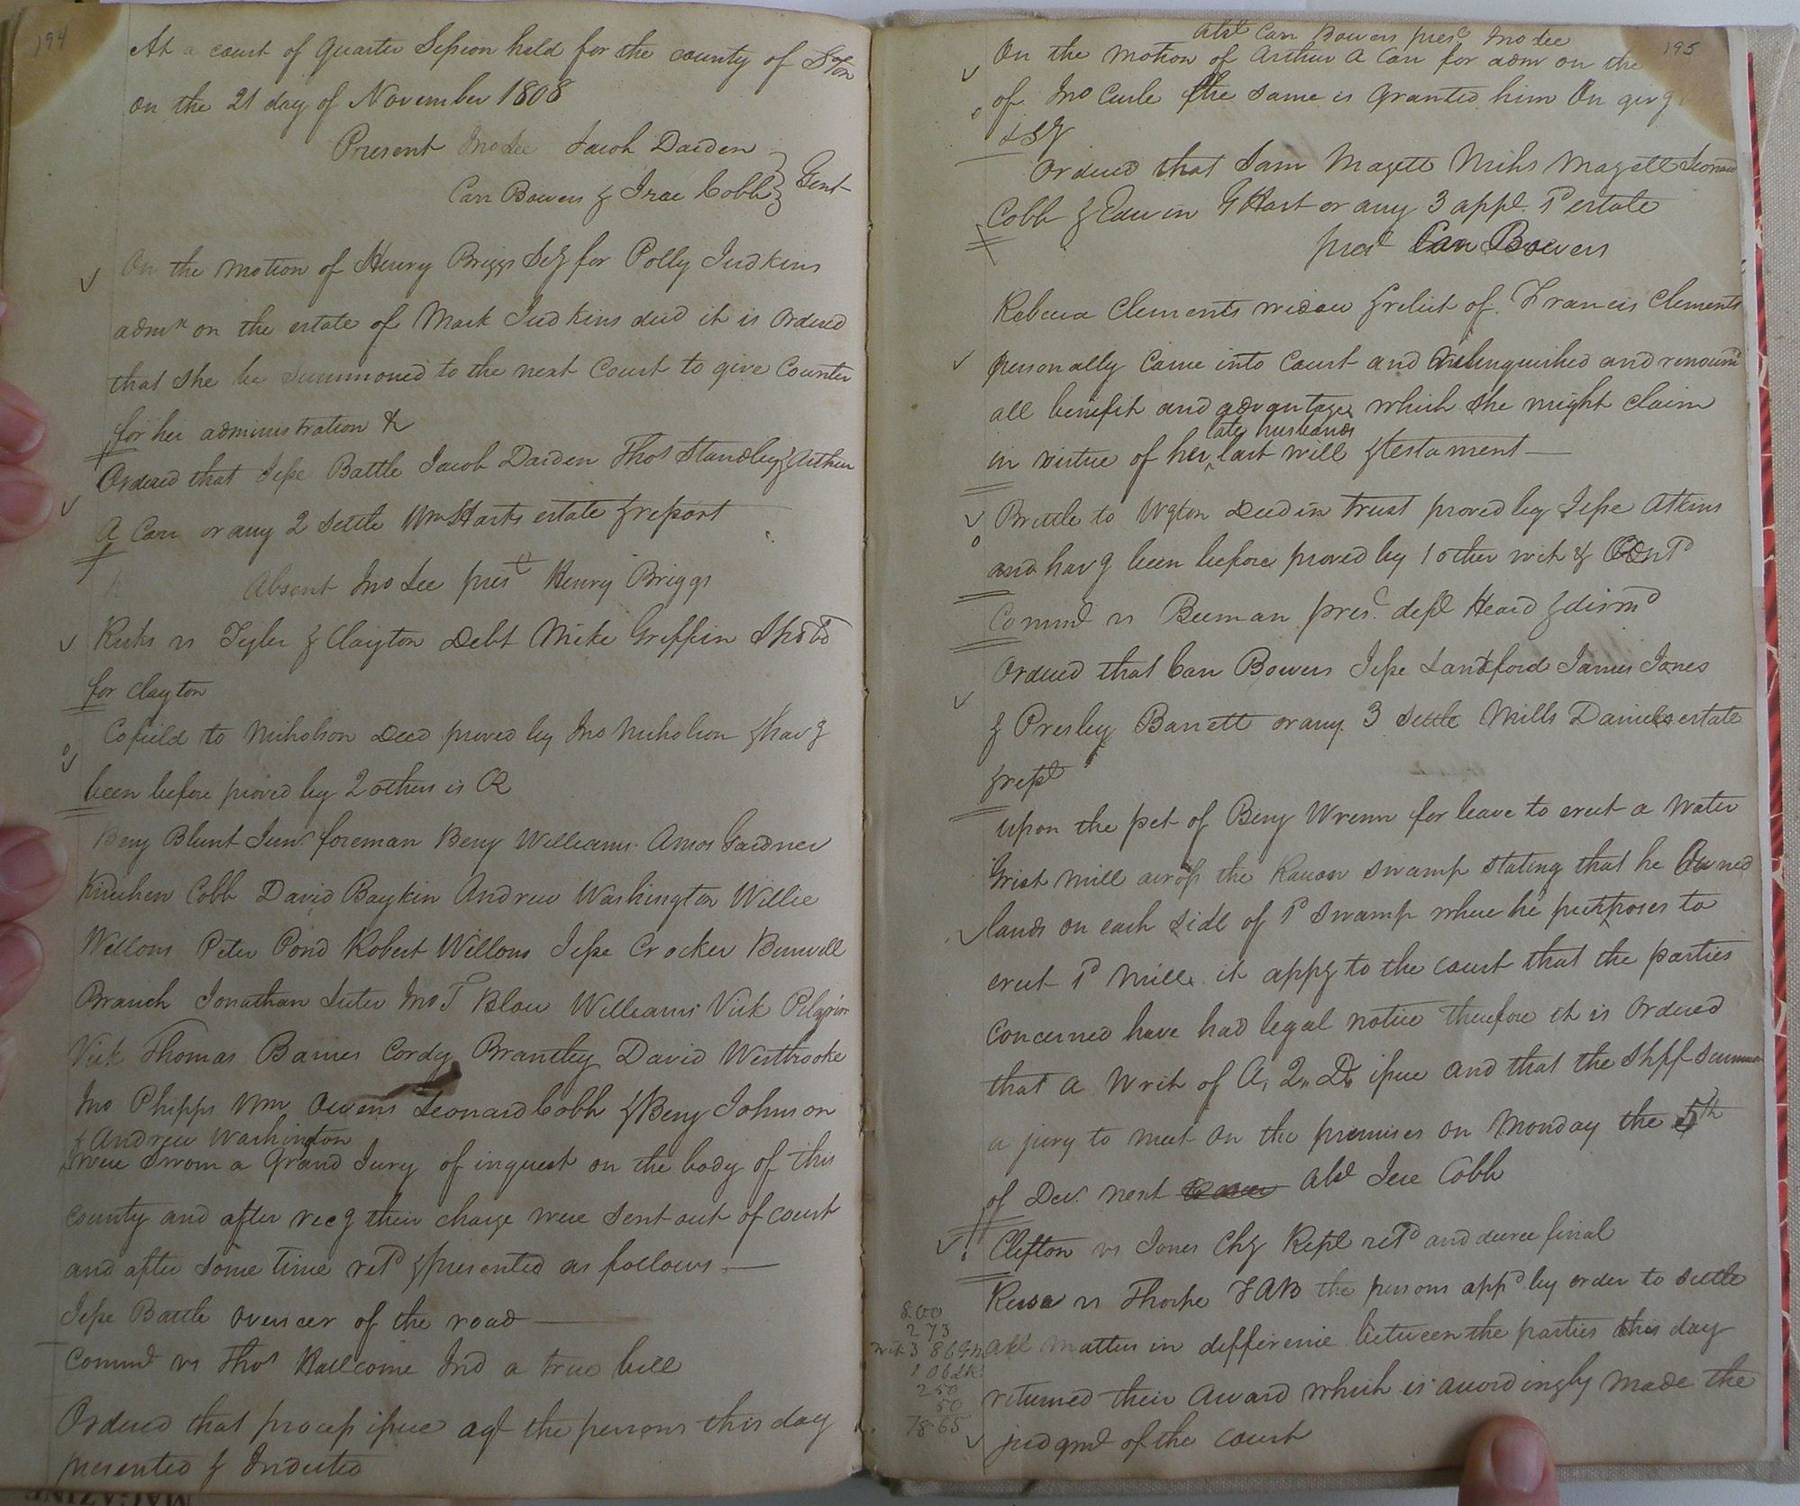 194
At a court of Quarter Session held for the county of Soton
on the 21 day of November 1808
Present Jno Lee Jacob Darden
Carr Bowers & Irae Cobb Gent
On the motion of Henry Briggs Sey for Polly Judkins
admx on the estate of Mark Judkins decd it is Ordered
that she be summoned to the next Court to give Counter
for her administration &
Ordered that Jesse Battle Jacob Darden Thos Standley & Arthur
A Carr or any 2 settle Wm Harts estate & report
Absent Jno Lee pres Henry Briggs
Ricks vs Tyler & Clayton Debt Mike Griffin
for Clayton
Cofield to Nicholson Deed proved by Jno Nicholson & havg
been before proved by 2 others is OR
Benj Blunt Junr foreman Benj Williams Amos Gardner
Kinchen Cobb David Boykin Andrew Washington Willie
Wellons Peter Pond Robert Wellons Jesse Crocker Burwell
Branch Jonathan Luter Jno T Blow Williams Vick Pilgrim
Vick Thomas Barnes Cordy Brantley David Westbrooke
Jno Phipps Wm Owens Leonard Cobb & Benj Johnson
& Andrew Washington
were sworn a Grand Jury of inquest on the body of this
county and after recg their charge were sent out of court
and after some time retd & presented as follows —
Jesse Battle overseer of the road —
Commd vs Thos Ind a true bill
Ordered that process issue agt the persons this day
presented & Indicted
195
Abst Carr Bowers prest Jno Lee
On the motion of Arthur A Carr for adm on the
of Jno the same is Granted him On givg
Ordered that Sam Magett Nichs Magett Leonard
Cobb & Edwin G Hart or any 3 appr sd estate
prest Carr Bowers
Rebecca Clements widow & relict of Francis Clements
personally Came into Court and relinquished and renouncd
all benefit and advantages which she might claim
late husbands
in virtue of her last will & testament —
Brittle to Wgton Deed in trust proved by Jesse Atkins
and havg been before proved by 1 other wit & Contd
Commd vs Beeman pres. deft Heard & dismd
Ordered that Carr Bowers Jesse Lankford James Jones
& Presley Barrett or any 3 settle Mills Daniels estate
& rept
Upon the pet of Benj Wrenn for leave to erect a Water
Grist mill across the swamp stating that he Owned
lands on each side of sd swamp where he purposes to
erect sd Mill it appg to the court that the parties
Concerned have had legal notice therefore it is Ordered
that a Writ of A, Q, D issue and that the Shff summon
a jury to meet on the premises on Monday the 5th
of Dec. next Abst Irae Cobb
Clifton vs Jones Chy Rept retd and decree final
vs Thorpe TAB the persons appd by order to settle
all matters in difference between the parties this day
returned their Award which is accordingly made the
judgmt of the Court
800
273
250
50
7865